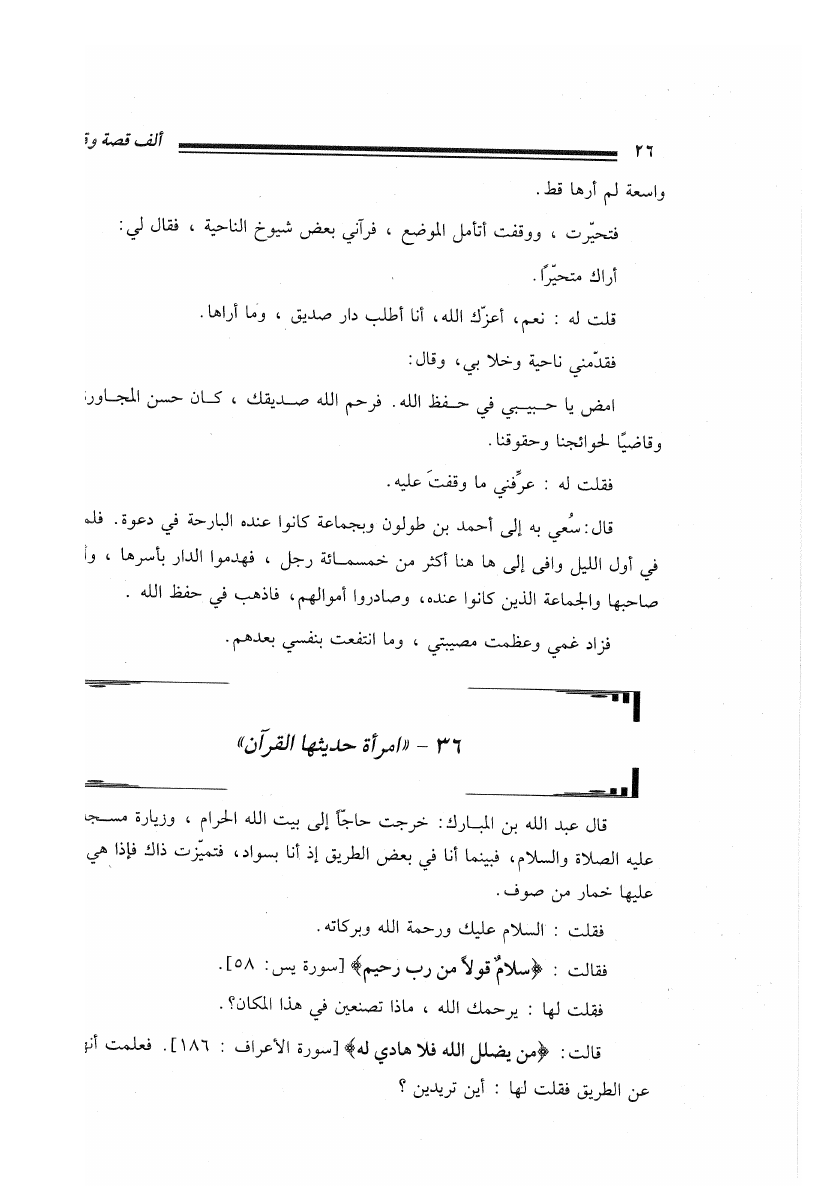 ٢٦ ألف قصة
واسعة لم أرها قط.
فتحيّرت ، ووقفت أتأمل الموضع ، فرآني بعض شيوخ الناحية ، فقال لي:
أراك متحيّرًا.
قلت له : نعم، أعزّك الله، أنا أطلب دار صديق ، وما أراها.
فقدّمني ناحية وخلا بي، وقال:
امض يا حبيبي في حفظ الله. فرحم الله صديقك ، كان حسن
وقاضيًا لحوائجنا وحقوقنا.
فقلت له : عرِّفني ما وقفتَ عليه.
قال: سُعي به إلى أحمد بن طولون وبجماعة كانوا عنده البارحة في دعوة.
في أول الليل وافى إلى ها هنا أكثر من خمسمائة رجل ، فهدموا الدار بأسرها ،
صاحبها والجماعة الذين كانوا عنده، وصادروا أموالهم، فاذهب في حفظ الله .
فزاد غمي وعظمت مصيبتي ، وما انتفعت بنفسي بعدهم.
٣٦ – «امرأة حديثها القرآن»
قال عبد الله بن المبارك: خرجت حاجّاً إلى بيت الله الحرام ، وزيارة
عليه الصلاة والسلام، فبينما أنا في بعض الطريق إذ أنا بسواد، فتميّزت ذاك فإذا هي
عليها خمار من صوف.
فقلت : السلام عليك ورحمة الله وبركاته.
فقالت : ﴿سلامٌ قولاً من رب رحيم﴾ [سورة يس: ٥٨].
فقلت لها : يرحمك الله ، ماذا تصنعين في هذا المكان؟.
قالت: ﴿من يضلل الله فلا هادي له﴾ [سورة الأعراف : ١٨٦]. فعلمت
عن الطريق فقلت لها : أين تريدين ؟